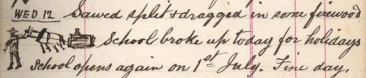 WED 12 Sawed split & dragged in some firewood
School broke up today for holidays
School opens again on 1st July. Fine day.